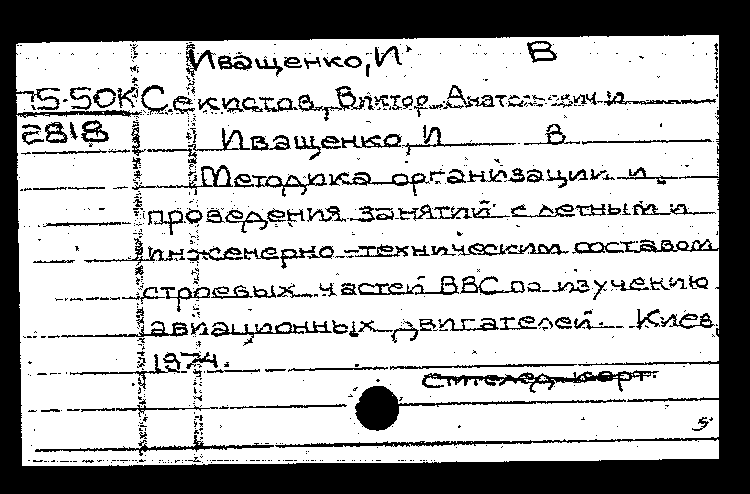 Иващенко, И В
75-50К Секистов, Виктор Анатольевич и
2818 Иващенко, И В
Методика организации и
проведения занятий с летным и
инженерно-техническим составом
строевых частей ВВС по изучению
авиационных двигателей. Киев,
1974.
5